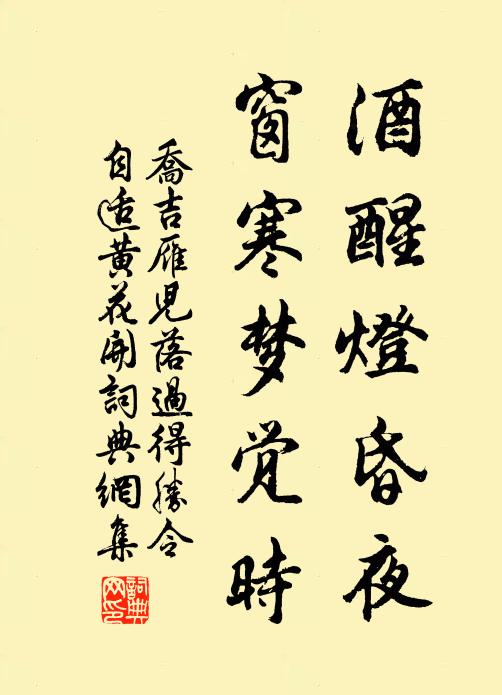 酒醒燈昏夜
窗寒梦觉時
喬吉雁児落過得勝令
自适黄花開詞典網集
詞典
网印